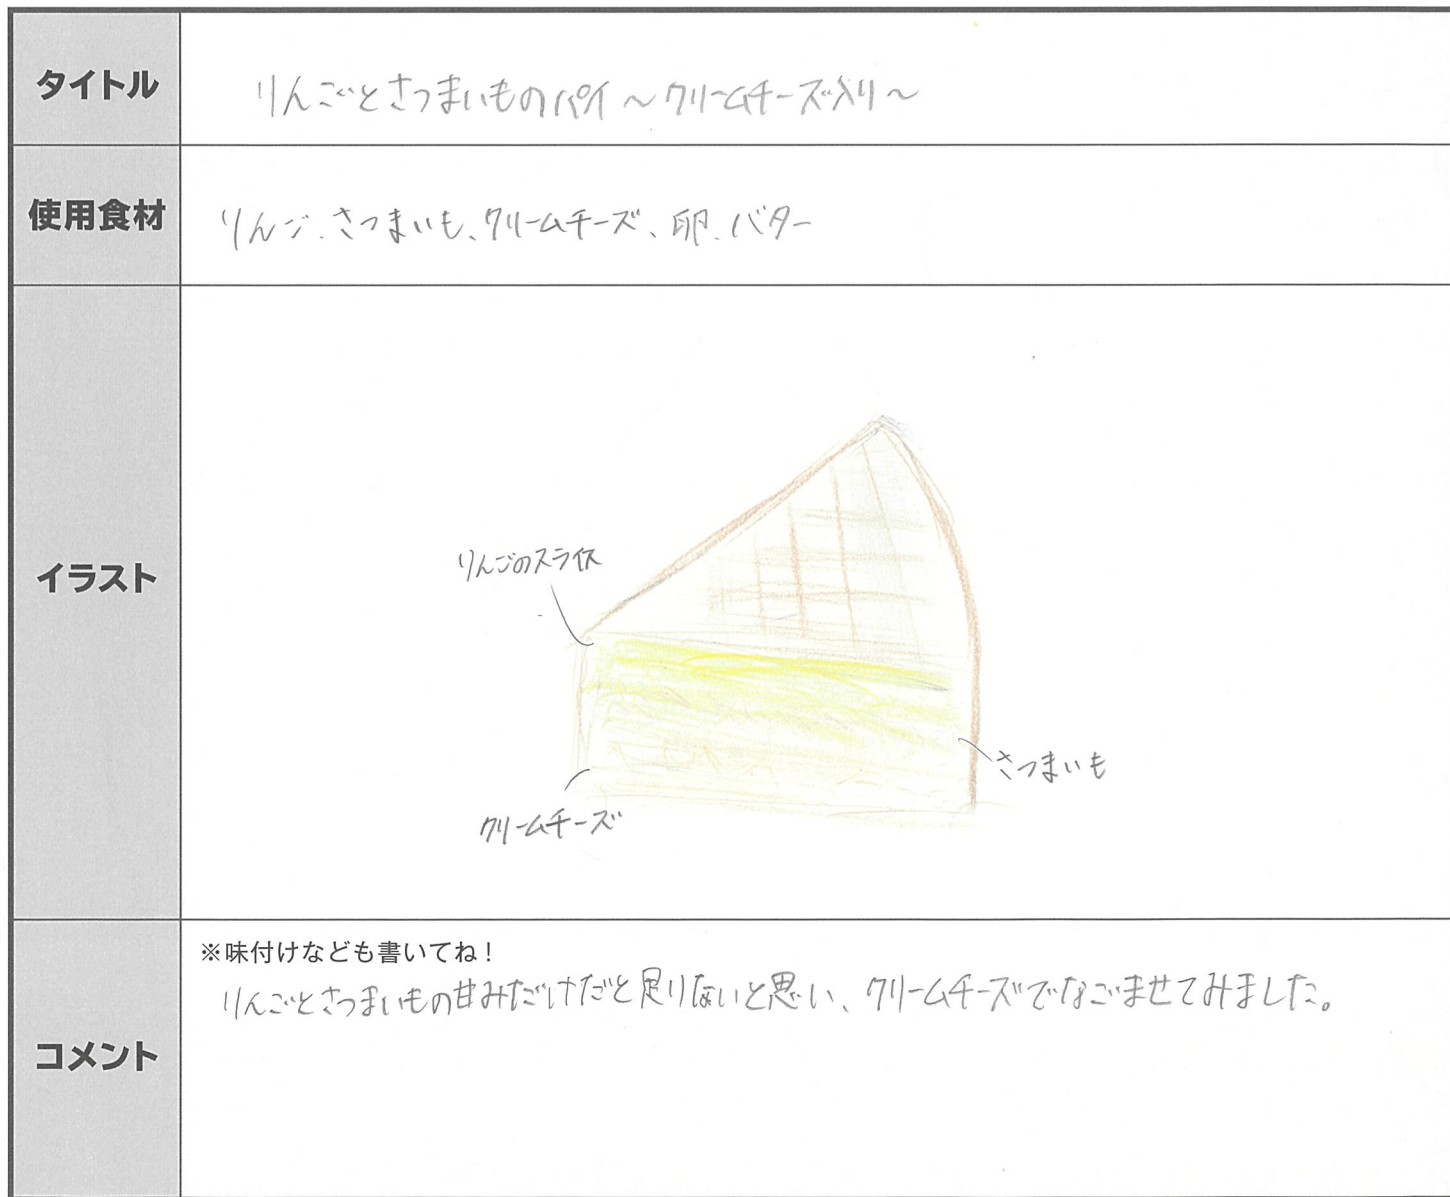 タイトル
りんごとさつまいものパイ ～クリームチーズ入り～
使用食材
りんご、さつまいも、クリームチーズ、卵、バター
イラスト
りんごのスライス
さつまいも
クリームチーズ
コメント
※味付けなども書いてね！
りんごとさつまいもの甘みだけだと足りないと思い、クリームチーズでなごませてみました。